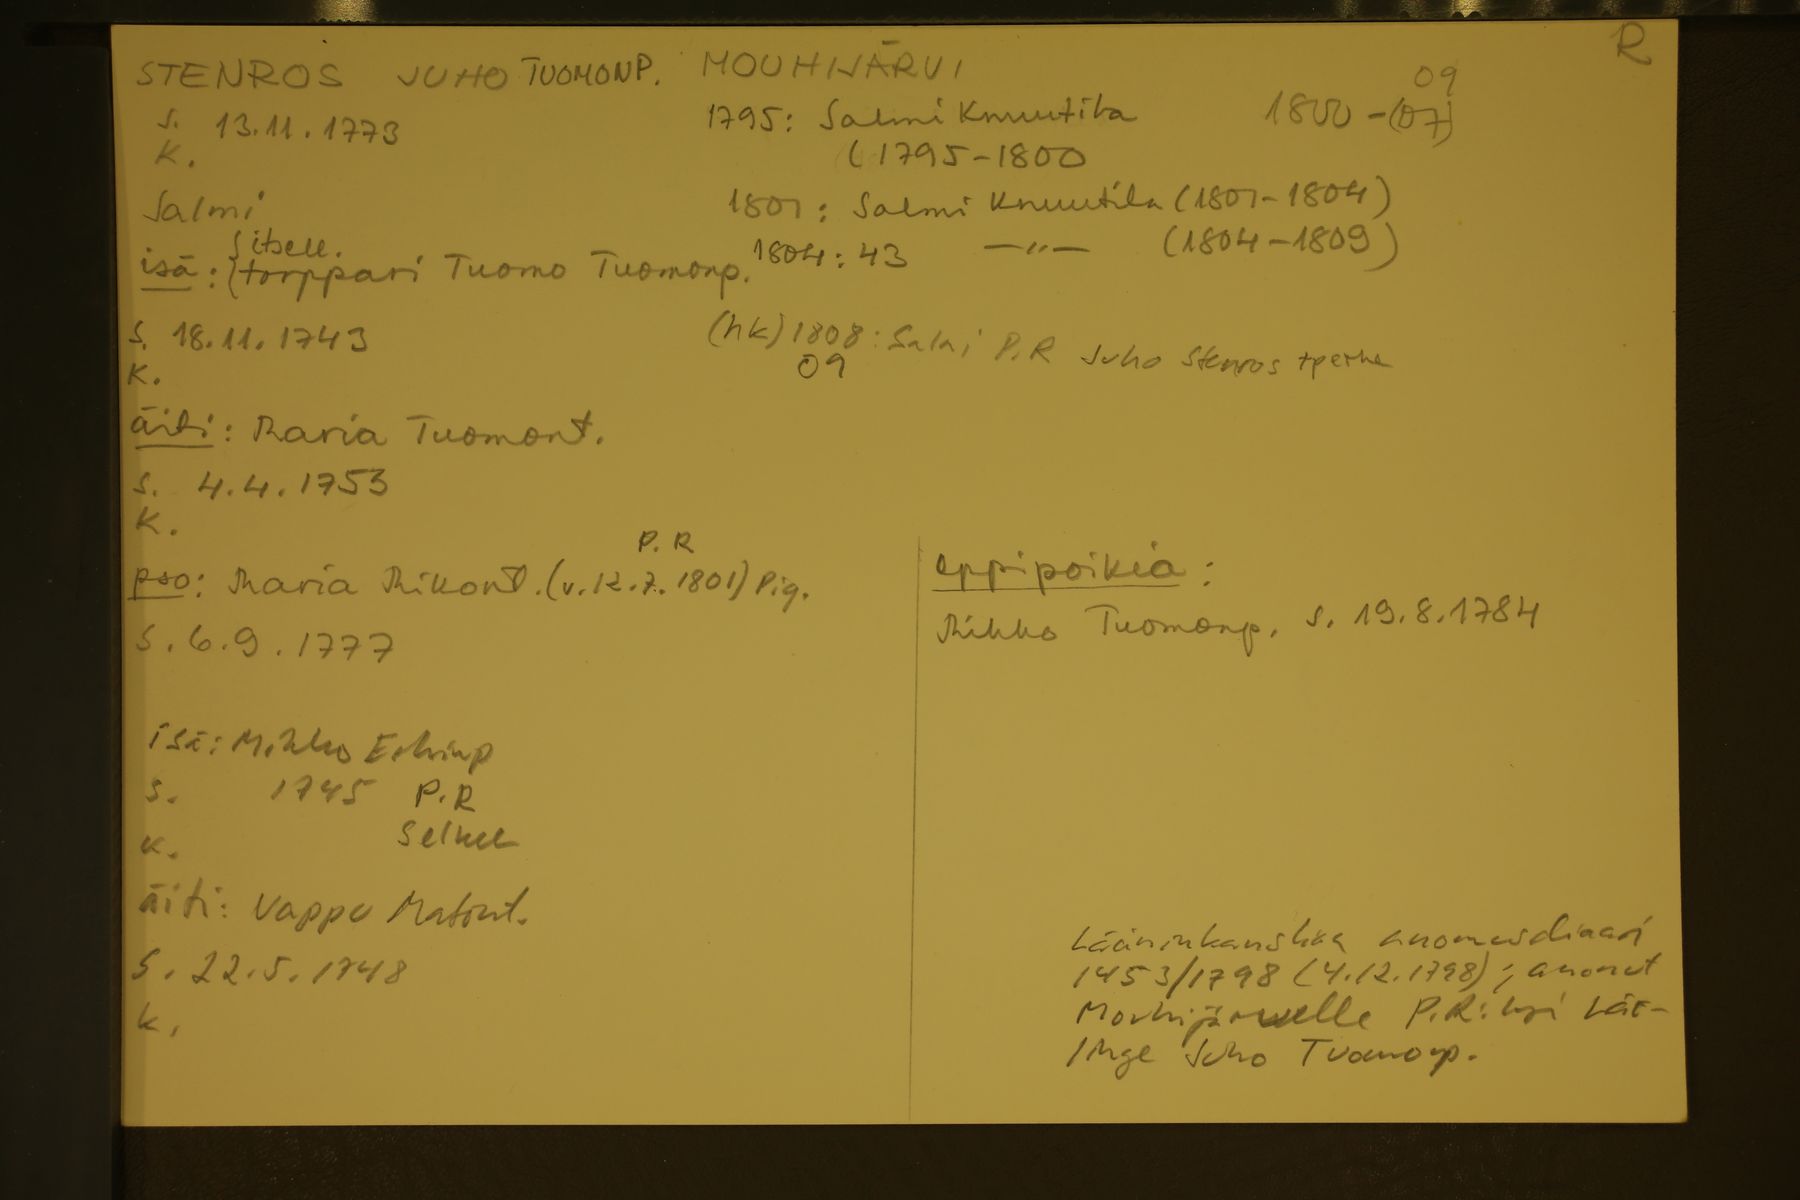 R
STENROS JUHO TUOMONP. MOUHIJÄRVI
09
s. 13.11.1773
1795: Salmi Knuutila 1800-(07)
k.
(1795-1800
Salmi
1801: Salmi Knuutila (1801-1804)
itsell.
isä: (torppari Tuomo Tuomonp.
1804: 43 —"— (1804-1809)
s. 18.11.1743
(hk) 1808: Salmi P.R Juho Stenros +perhe
09
k.
äiti: Maria Tuomont.
s. 4.4.1753
k.
P.R
pso: Maria Mikont. (v. 12.7.1801) Piq.
s. 6.9.1777
isä: Mikko Eskinp
s. 1745 P.R
k. Selkee
äiti: Vappu Matint.
s. 22.5.1748
k.
oppipoikia:
Mikko Tuomonp. s. 19.8.1784
Lääninkanslian anomusdiaari
1453/1798 (4.12.1798); anonut
Mouhijärvelle P.R:ksi Lär-
linge Juho Tuomonp.